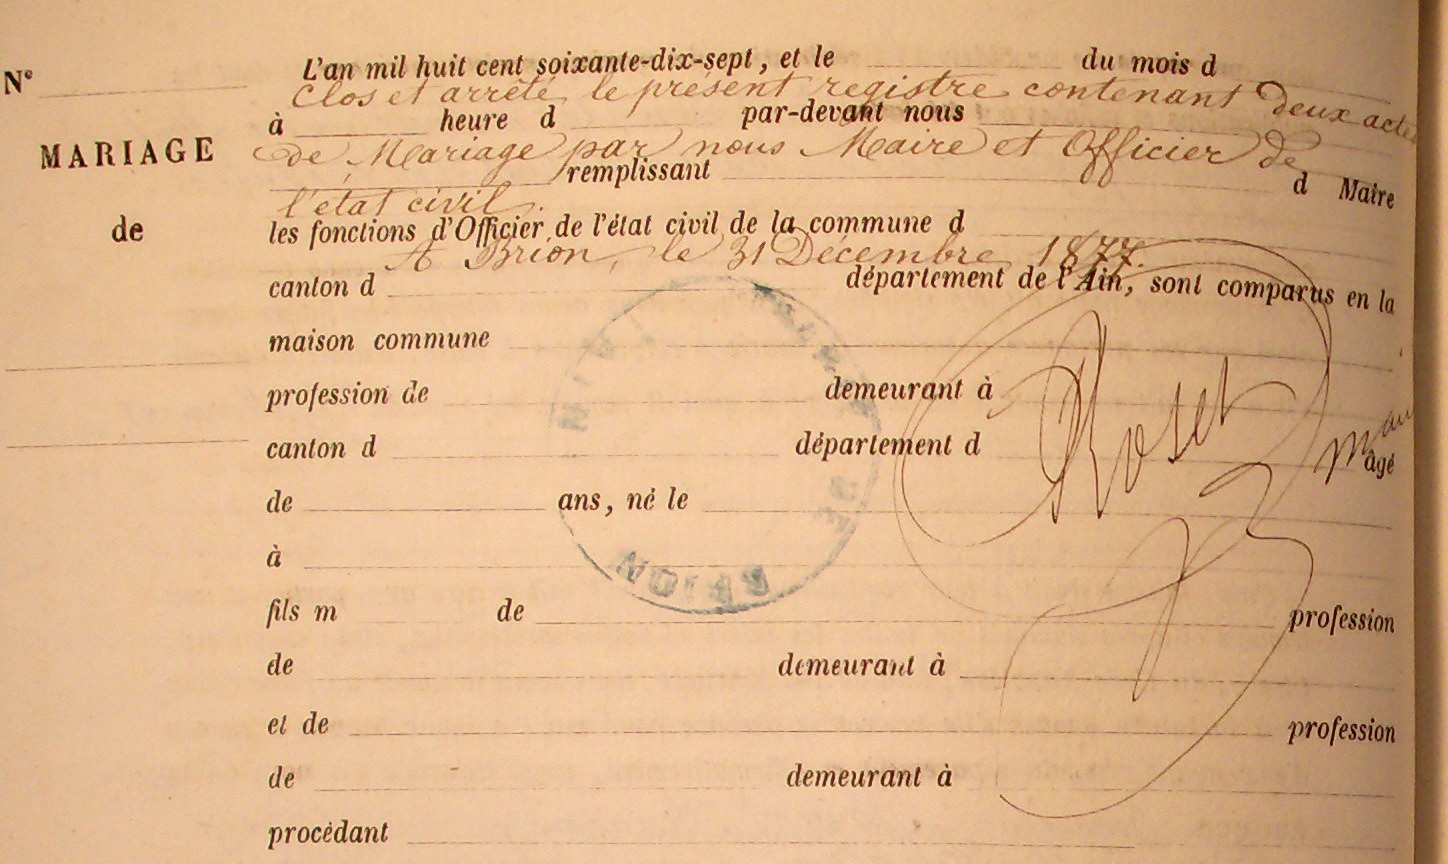 Nº
L'an mil huit cent soixante-dix-sept, et le du mois d
Clos et arrêté le présent registre contenant deux actes
à heure d par-devant nous
MARIAGE
de Mariage par nous Maire et Officier de
remplissant d Maire
l'état civil.
de
les fonctions d'Officier de l'état civil de la commune d
A Brion, le 31 Décembre 1877.
canton d département de l'Ain, sont comparus en la
maison commune
profession de demeurant à
Roset
canton d département d âgé
de ans, né le
à
BRION
fils m de profession
de demeurant à
et de profession
de demeurant à
procédant